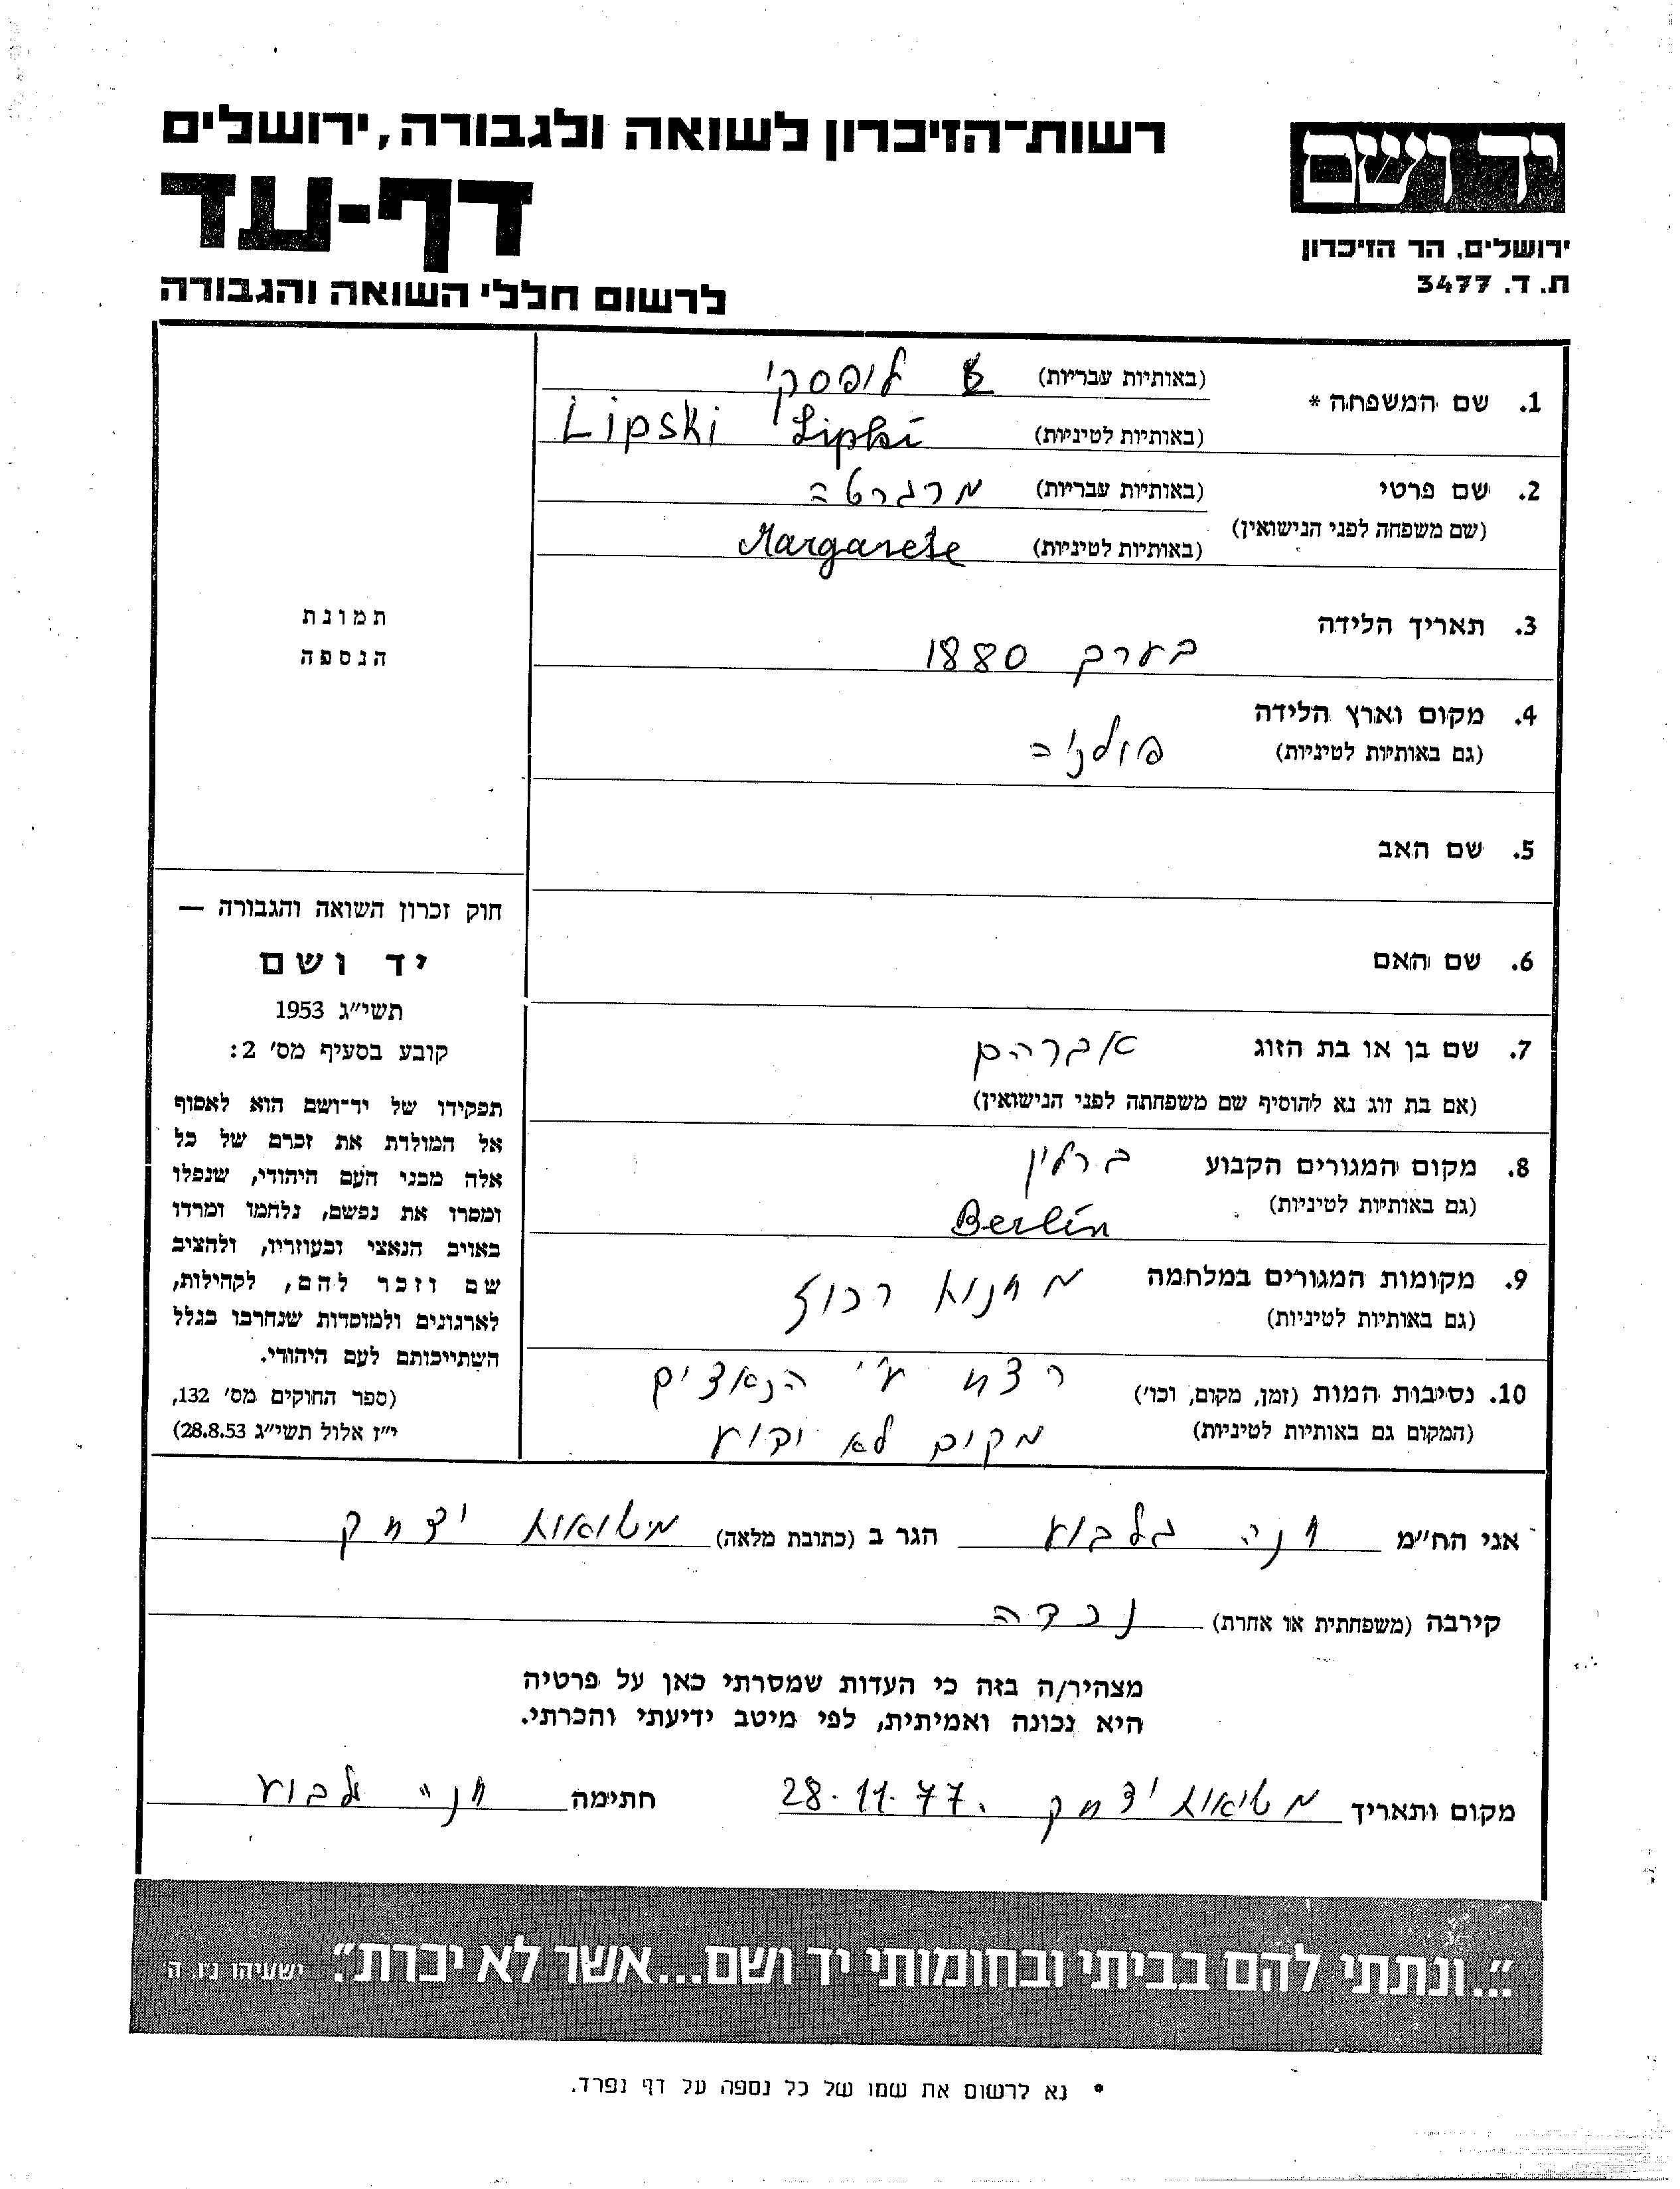 יד ושם
ירושלים, הר הזיכרון
ת. ד. 3477
רשות-הזיכרון לשואה ולגבורה, ירושלים
דף-עד
לרשום חללי השואה והגבורה
1. שם המשפחה *
(באותיות עבריות) ליפסקי
(באותיות לטיניות) Lipski Lipski
2. שם פרטי
(שם משפחה לפני הנישואין)
(באותיות עבריות) מרגרטה
(באותיות לטיניות) Margarete
3. תאריך הלידה
בערך 1880
4. מקום וארץ הלידה
(גם באותיות לטיניות)
פולניה
5. שם האב
6. שם האם
7. שם בן או בת הזוג אברהם
(אם בת זוג נא להוסיף שם משפחתה לפני הנישואין)
8. מקום המגורים הקבוע ברלין
(גם באותיות לטיניות) Berlin
9. מקומות המגורים במלחמה מחנות רכוז
(גם באותיות לטיניות)
10. נסיבות המות (זמן, מקום, וכו') רצח ע"י הנאצים
(המקום גם באותיות לטיניות) מקום לא ידוע
תמונת
הנספה
חוק זכרון השואה והגבורה —
יד ושם
תשי"ג 1953
קובע בסעיף מס' 2:
תפקידו של יד-ושם הוא לאסוף
אל המולדת את זכרם של כל
אלה מבני העם היהודי, שנפלו
ומסרו את נפשם, נלחמו ומרדו
באויב הנאצי ובעוזריו, ולהציב
שם וזכר להם, לקהילות,
לארגונים ולמוסדות שנחרבו בגלל
השתייכותם לעם היהודי.
(ספר החוקים מס' 132,
י"ז אלול תשי"ג 28.8.53)
אני הח"מ חנה גלבוע הגר ב (כתובת מלאה) משואות יצחק
קירבה (משפחתית או אחרת) נכדה
מצהיר/ה בזה כי העדות שמסרתי כאן על פרטיה
היא נכונה ואמיתית, לפי מיטב ידיעתי והכרתי.
מקום ותאריך משואות יצחק 28.11.77. חתימה חנה גלבוע
"...ונתתי להם בביתי ובחומותי יד ושם...אשר לא יכרת". ישעיהו נ"ו, ה'
* נא לרשום את שמו של כל נספה על דף נפרד.